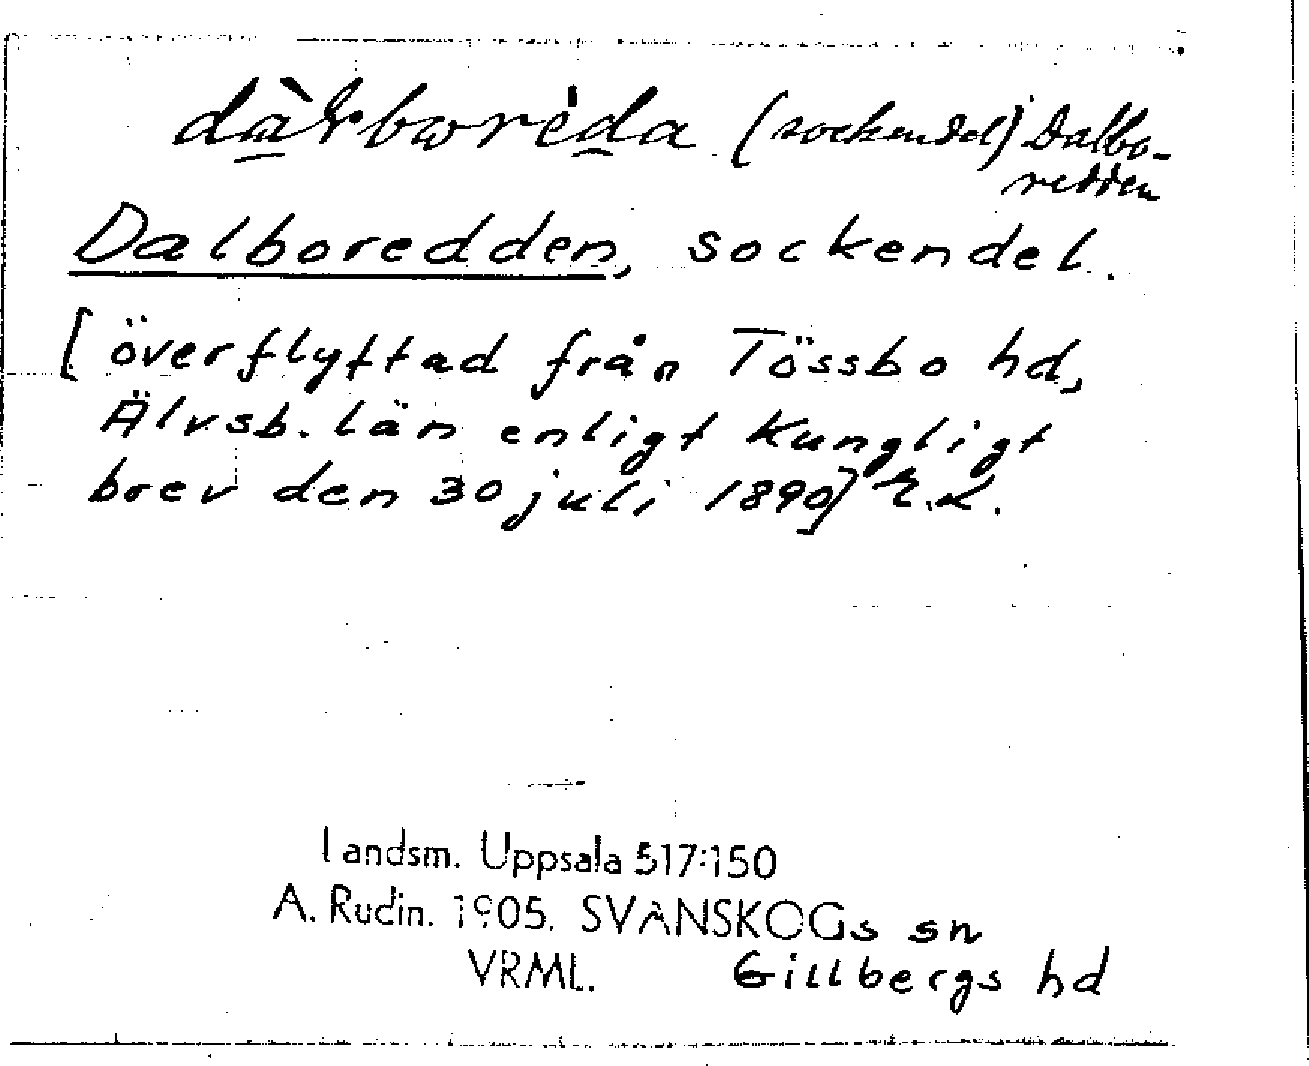 dàɫborèda (sockendel) Dalbo-
redden
Dalboredden, sockendel.
[överflyttad från Tössbo hd,
Älvsb. län enligt Kungligt
brev den 30 juli 1890] E.L.
Landsm. Uppsala 517:150
A. Rudin. 1905. SVANSKOGs sn
VRML. Gillbergs hd